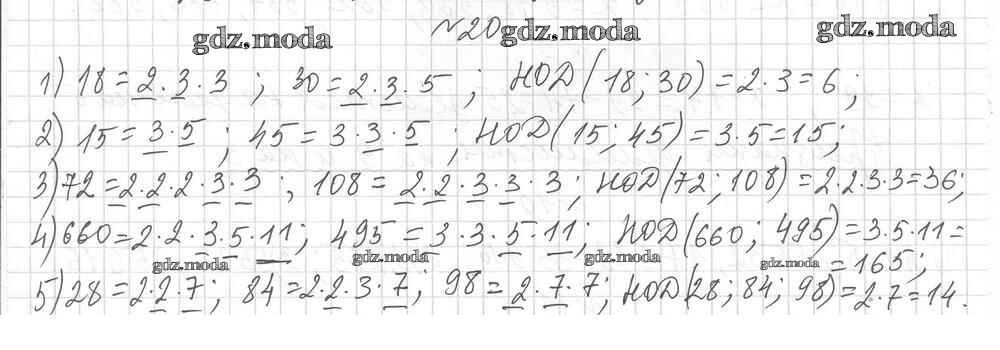 №20
gdz.moda gdz.moda gdz.moda
1) 18 = 2·3·3 ; 30 = 2·3·5 ; НОД(18; 30) = 2·3 = 6 ;
2) 15 = 3·5 ; 45 = 3·3·5 ; НОД(15; 45) = 3·5 = 15 ;
3) 72 = 2·2·2·3·3 ; 108 = 2·2·3·3·3 ; НОД(72; 108) = 2·2·3·3 = 36 ;
4) 660 = 2·2·3·5·11 ; 495 = 3·3·5·11 ; НОД(660; 495) = 3·5·11 =
= 165 ;
gdz.moda gdz.moda gdz.moda gdz.moda
5) 28 = 2·2·7 ; 84 = 2·2·3·7 ; 98 = 2·7·7 ; НОД(28; 84; 98) = 2·7 = 14.